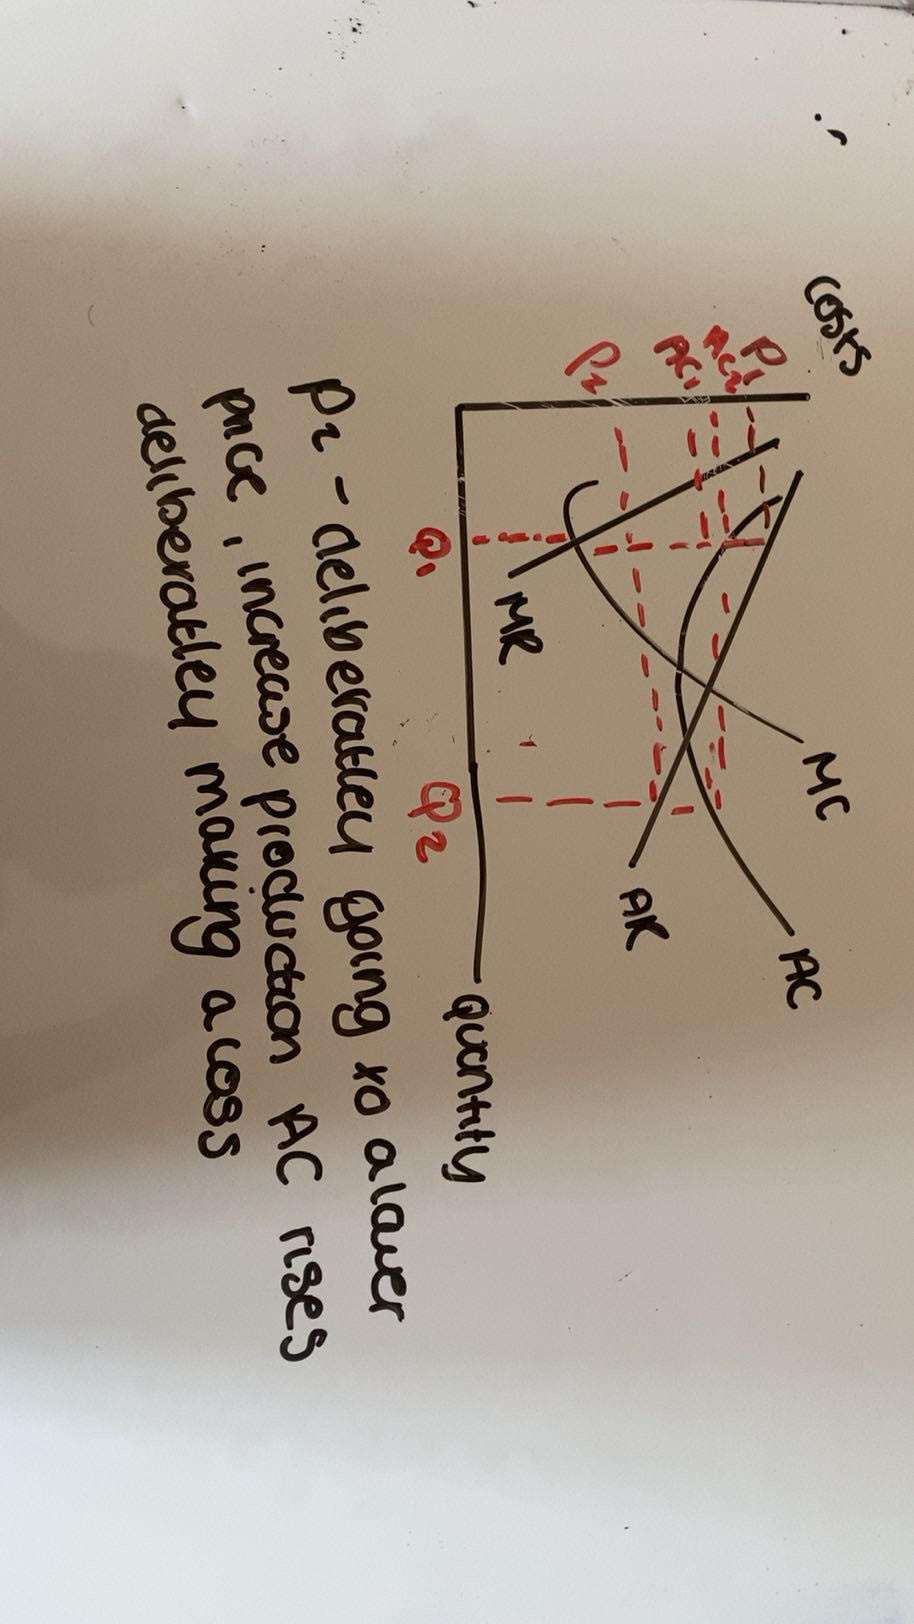 Costs
P1
AC2
AC1
P2
MC
AC
AR
MR
Q1
Q2
Quantity
P2 - deliberatley going to a lower
price, increase production AC rises
deliberatley making a loss